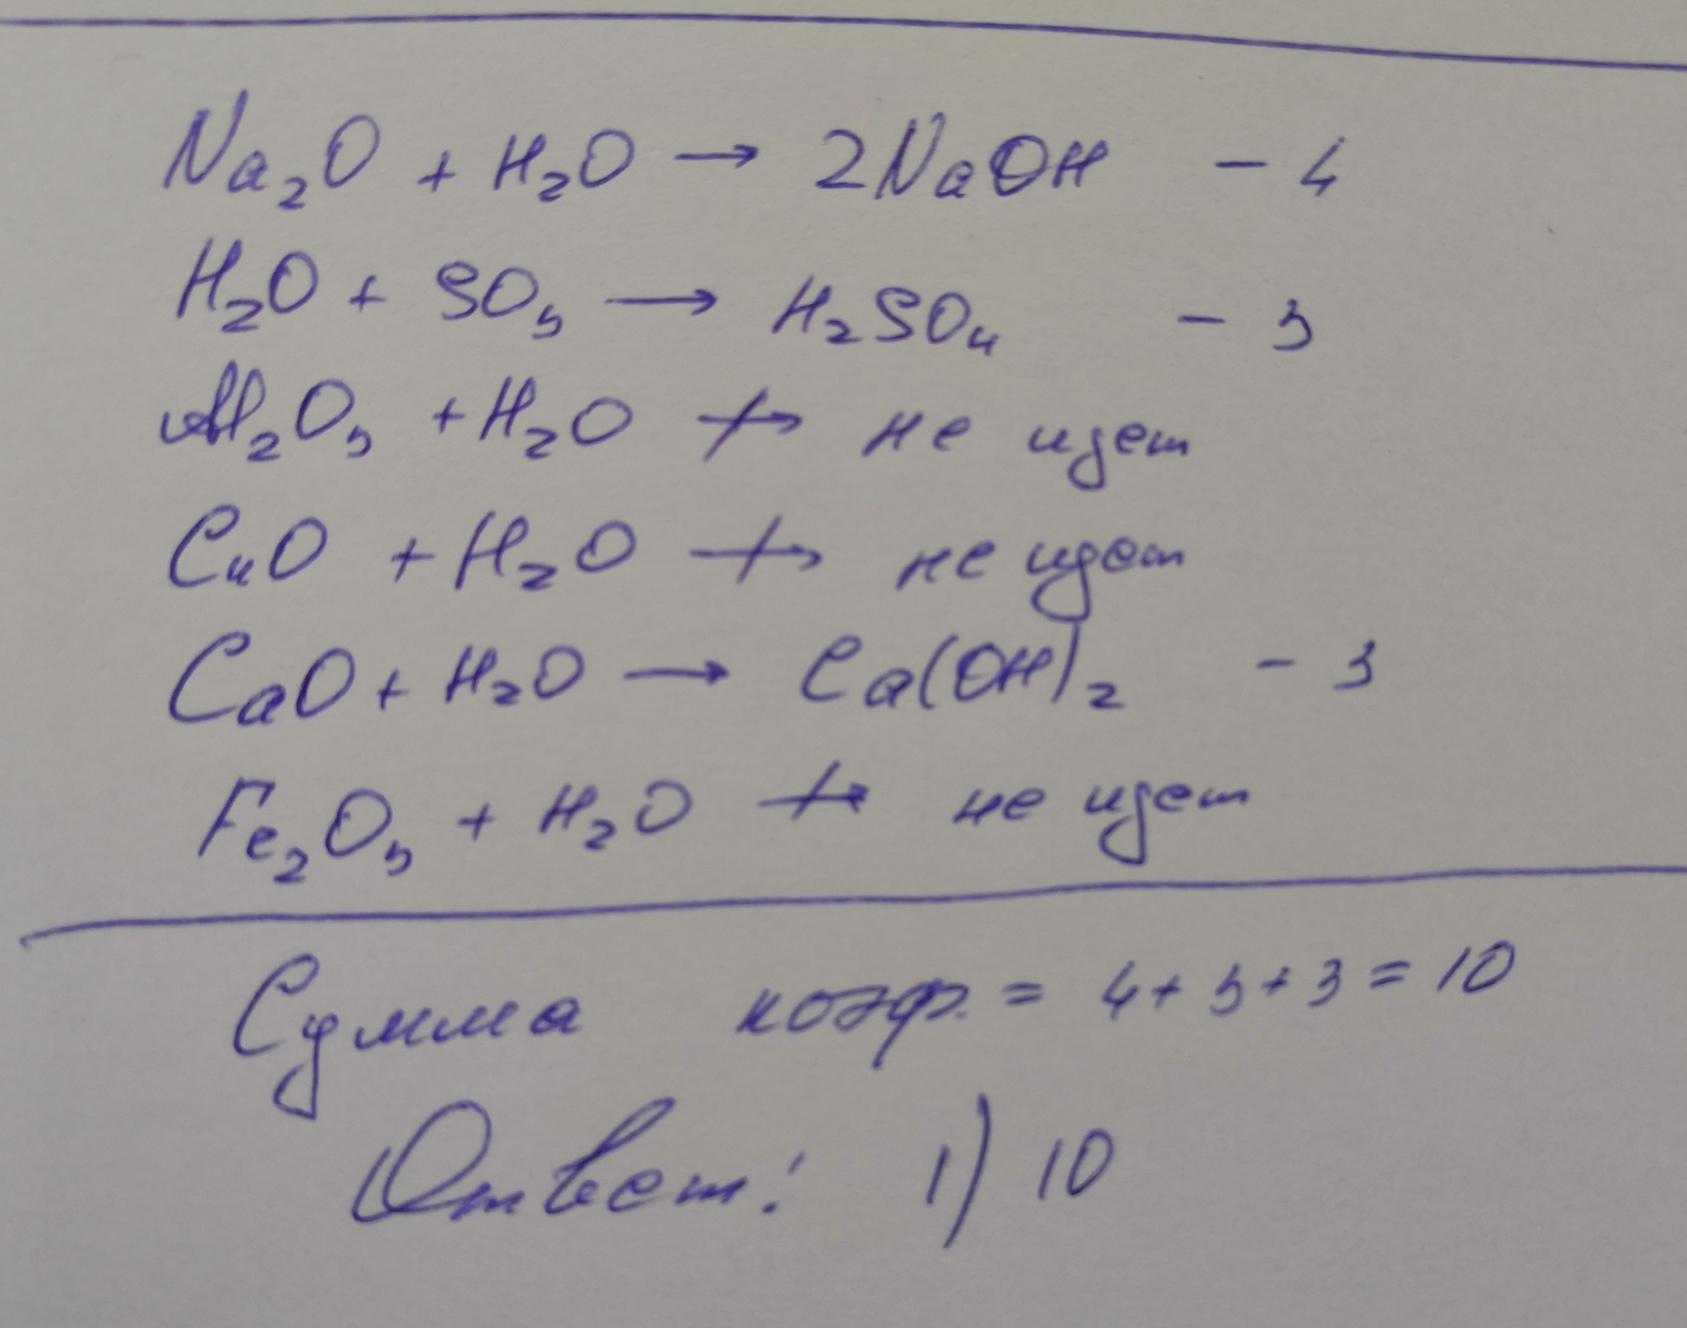 Na₂O + H₂O → 2NaOH - 4
H₂O + SO₃ → H₂SO₄ - 3
Al₂O₃ + H₂O ↛ не идет
CuO + H₂O ↛ не идет
CaO + H₂O → Ca(OH)₂ - 3
Fe₂O₃ + H₂O ↛ не идет
Сумма коэф. = 4 + 3 + 3 = 10
Ответ: 1) 10